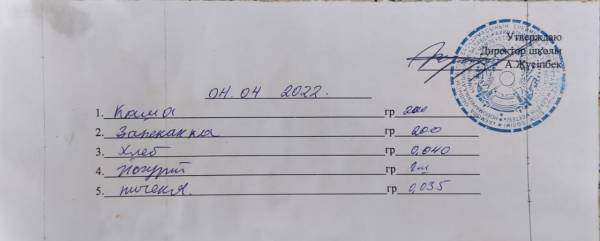 Утверждаю
Директор школы
А.Жүсіпбек
04.04 2022.
1. Каша гр 200
2. Запеканка гр 200
3. Хлеб гр 0,040
4. Йогурт гр 1 ш
5. печенья. гр 0,035